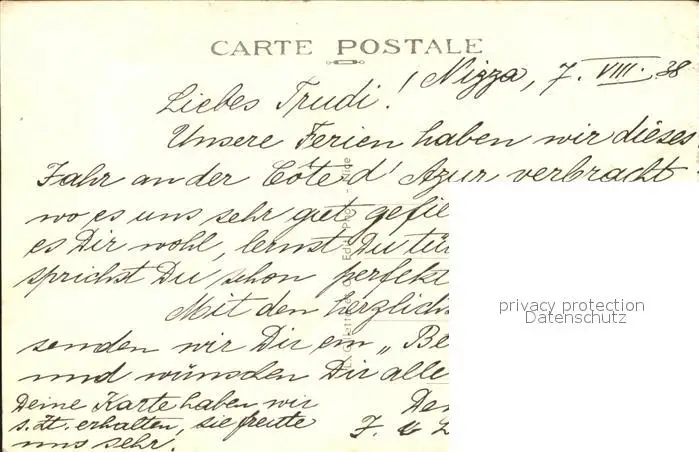 CARTE POSTALE
Nizza, 7. VIII. 38
Liebes Trudi!
Unsere Ferien haben wir dieses
Jahr an der Côte d'Azur verbracht
wo es uns sehr gut gefie
es Dir wohl, lernst Du tü
sprichst Du schon perfekt
Mit den herzlich
senden wir Dir ein „Be
und wünschen Dir alle
Deine Karte haben wir
s. Zt. erhalten, sie freute
uns sehr.
privacy protection
Datenschutz